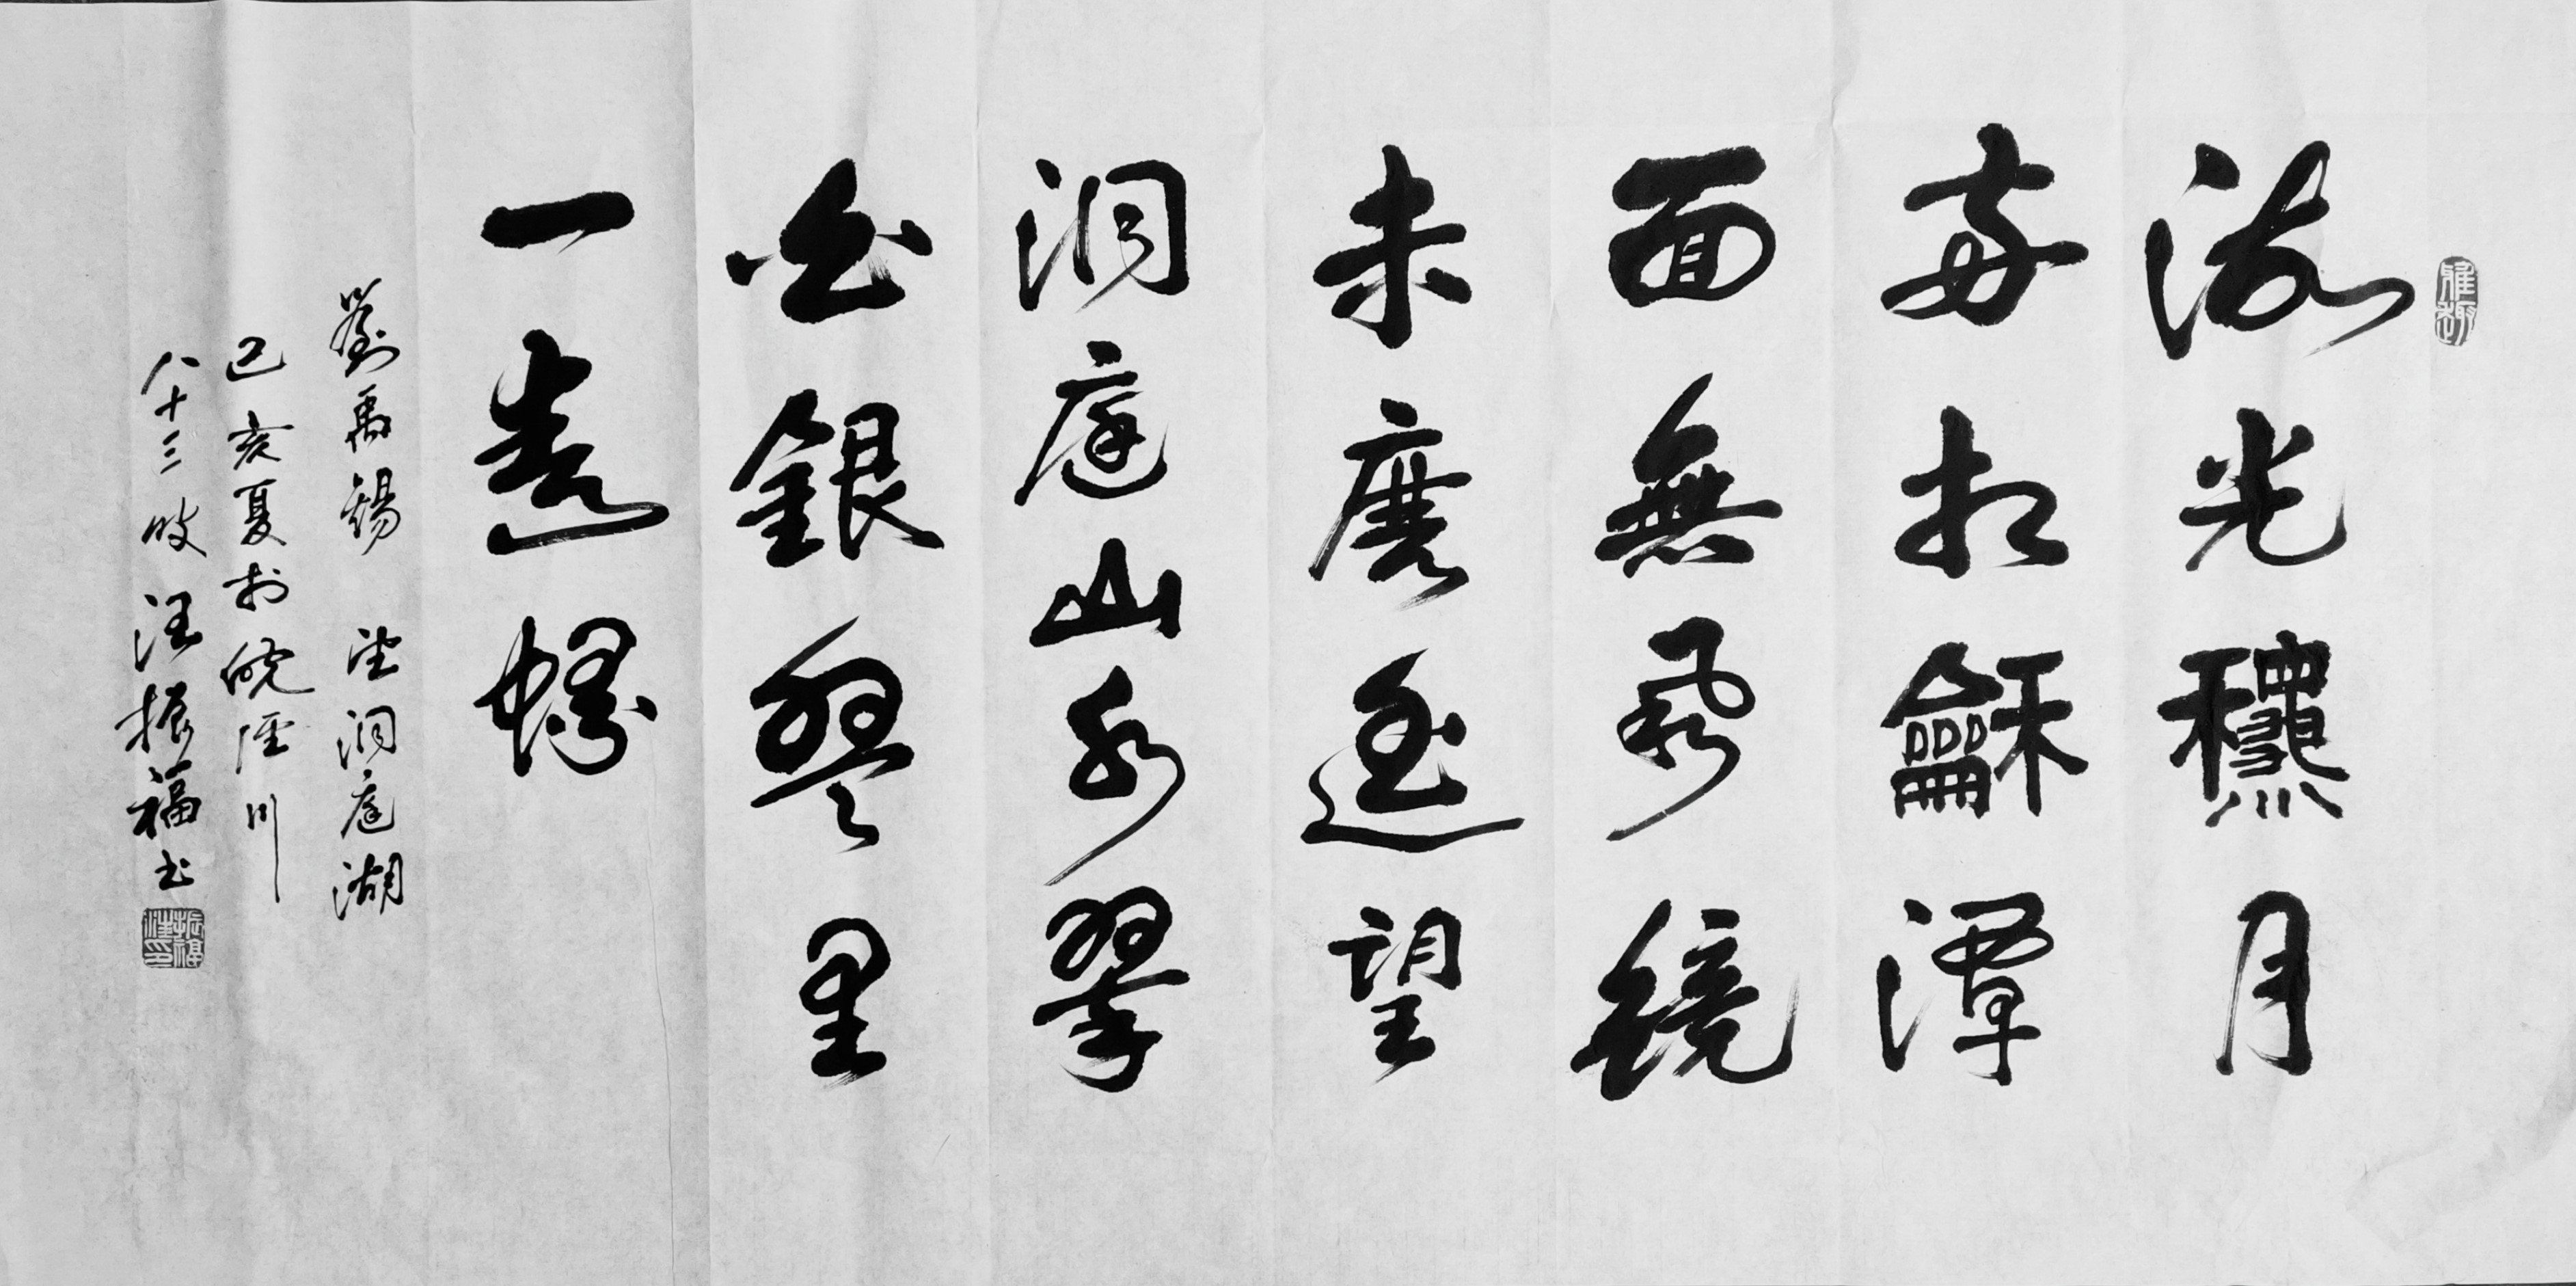 雅趣
湖光龝月
兩相龢潭
面無風鏡
未磨遙望
洞庭山水翠
白銀盤里
一青螺
劉禹錫 望洞庭湖
己亥夏於皖涇川
八十三叟汪振福书
振福汪印